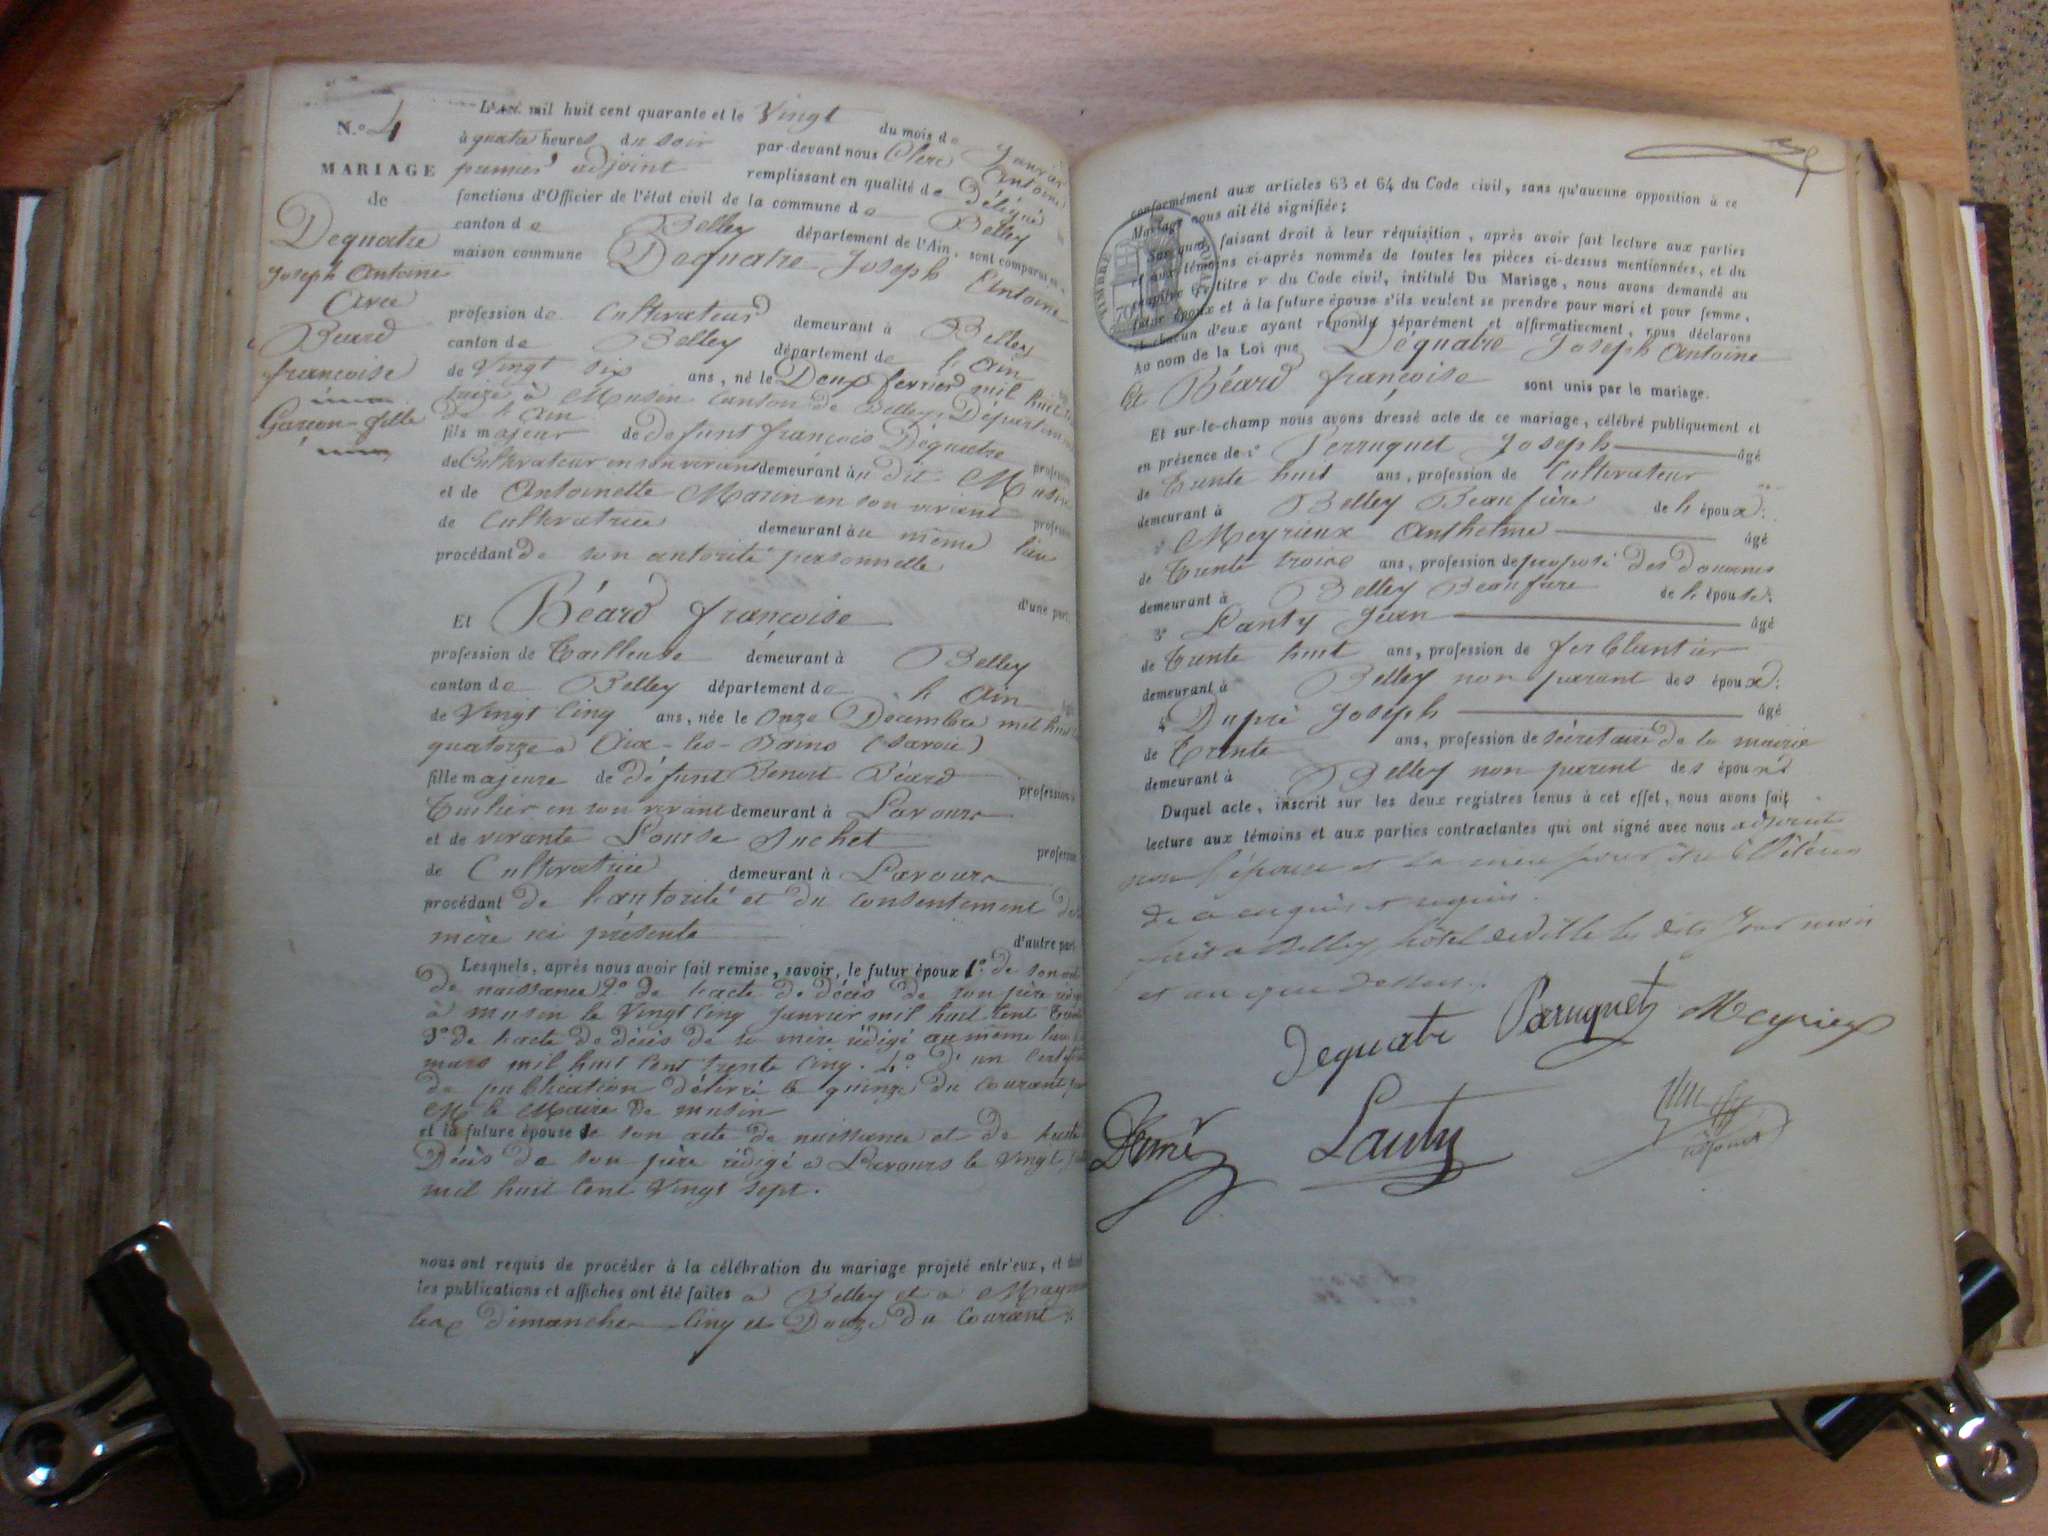 N.º 4
MARIAGE
de
Dequatre
Joseph Antoine
avec
Béard
françoise
Garçon - fille
L'AN mil huit cent quarante et le Vingt du mois de Janvier
à quatre heures du soir par-devant nous Clerc Antoine
premier adjoint remplissant en qualité de Délégué
fonctions d'Officier de l'état civil de la commune de Belley
canton de Belley département de l'Ain, sont comparus en
maison commune Dequatre Joseph Antoine
profession de Cultivateur demeurant à Belley
canton de Belley département de l'ain
de Vingt six ans, né le Deux février mil huit
treize à Musin Canton de Belley, Département
de l'ain
fils majeur de défunt françois Dequatre profession
de Cultivateur en son vivant demeurant au dit Musin
et de Antoinette Marin en son vivant profession
de Cultivatrice demeurant au même lieu
procédant de son autorité personnelle
d'une part
Et Béard françoise
profession de Tailleuse demeurant à Belley
canton de Belley département de l'ain
de Vingt Cinq ans, née le Onze Décembre mil huit
quatorze à Aix-les-Bains (Savoie)
fille majeure de défunt Benoit Béard profession
Tuilier en son vivant demeurant à Lavours
et de vivante Louise Suchet profession
de Cultivatrice demeurant à Lavours
procédant de l'autorité et du consentement de sa
mère ici présente
d'autre part
Lesquels, après nous avoir fait remise, savoir, le futur époux 1.º de son acte
de naissance 2º de l'acte de décès de son père rédigé
à musin le Vingt Cinq Janvier mil huit Cent
3º de l'acte de décès de sa mère rédigé au même lieu
mars mil huit Cent trente Cinq. 4.º d'un Certificat
de publication délivré le quinze du Courant par
M le Maire de musin
et la future épouse de son acte de naissance et de l'acte
Décès de son père rédigé à Lavours le Vingt
mil huit Cent Vingt sept.
nous ont requis de procéder à la célébration du mariage projeté entr'eux, et dont
les publications et affiches ont été faites à Belley et à
les dimanches Cinq et Douze du Courant
conformément aux articles 63 et 64 du Code civil, sans qu'aucune opposition à ce
Mariage nous ait été signifiée;
Sur quoi, faisant droit à leur réquisition, après avoir fait lecture aux parties
et aux témoins ci-après nommés de toutes les pièces ci-dessus mentionnées, et du
chapitre 6, titre v du Code civil, intitulé Du Mariage, nous avons demandé au
futur époux et à la future épouse s'ils veulent se prendre pour mari et pour femme,
et chacun d'eux ayant répondu séparément et affirmativement, nous déclarons
Au nom de la Loi que Dequatre Joseph Antoine
Et Béard françoise sont unis par le mariage.
Et sur-le-champ nous avons dressé acte de ce mariage, célébré publiquement et
en présence de 1º Perruquet Joseph âgé
de Trente huit ans, profession de Cultivateur
demeurant à Belley Beaufrère de l'époux.
2º Meyrieux Anthelme âgé
de Trente trois ans, profession de préposé des Douanes
demeurant à Belley Beaufrère de l'épouse.
3º Lanty Jean âgé
de Trente huit ans, profession de ferblantier
demeurant à Belley non parent des époux.
4º Dupré Joseph âgé
de Trente ans, profession de sécretaire de la mairie
demeurant à Belley non parent des époux
Duquel acte, inscrit sur les deux registres tenus à cet effet, nous avons fait
lecture aux témoins et aux parties contractantes qui ont signé avec nous adjoint
non l'épouse et sa mère pour être illitérées
de ce enquises et requises.
fait à Belley, hôtel de ville les dits Jour mois
et an que dessus.
Dequatre Peruquet Meyrieux
Lanty
adjoint
TIMBRE ROYAL
70